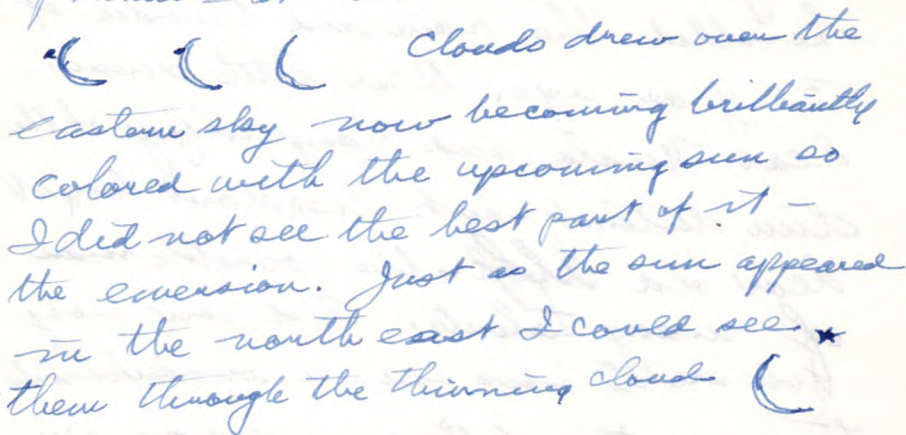 Clouds drew over the
eastern sky now becoming brilliantly
colored with the upcoming sun so
I did not see the best part of it –
the emersion. Just as the sun appeared
in the north east I could see
them through the thinning cloud